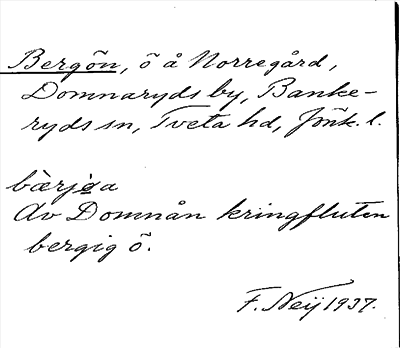 Bergön, ö å Norregård,
Domnaryds by, Banke-
ryds sn, Tveta hd, Jönk. l.
bærjøa
Av Domnån kringfluten
bergig ö.
F. Neij 1937.